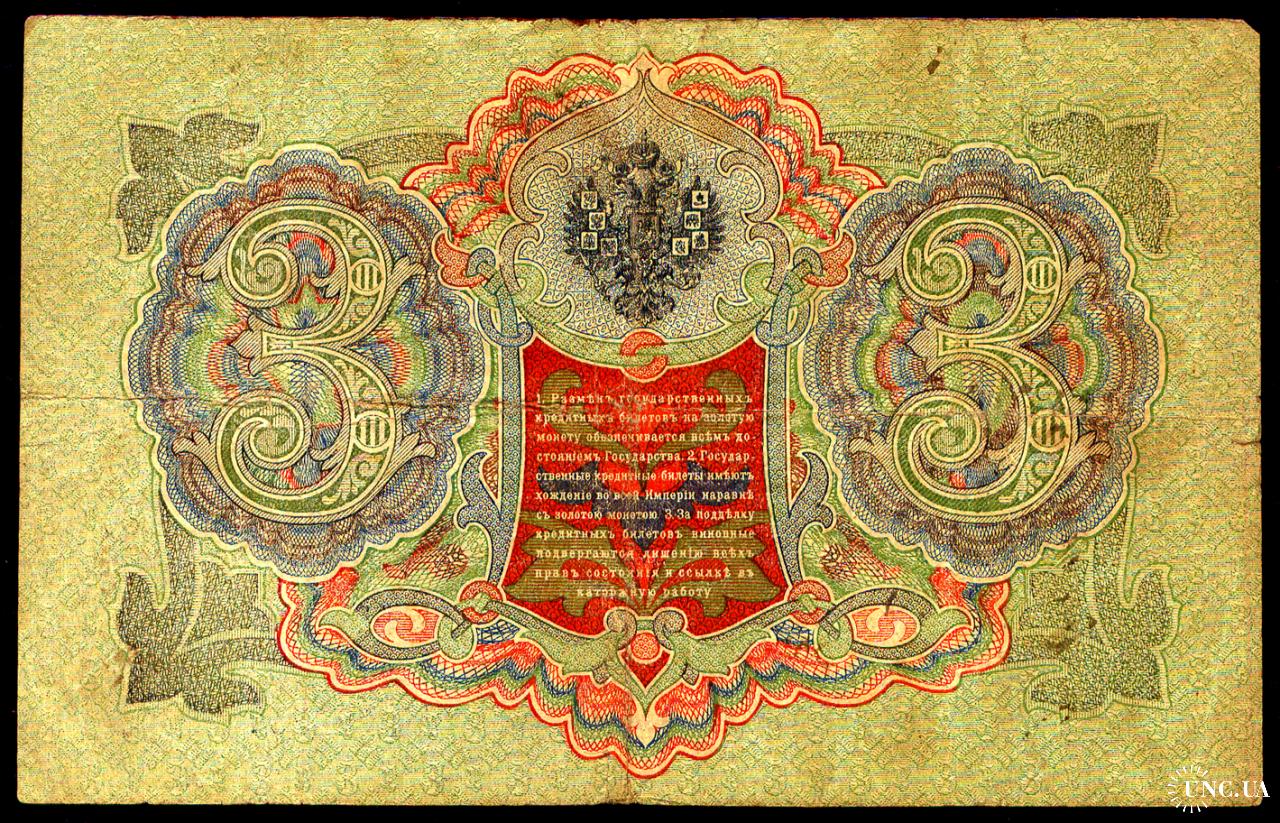 3
3
1. Размѣнъ государственныхъ
кредитныхъ билетовъ на золотую
монету обезпечивается всѣмъ до-
стояніемъ Государства. 2. Государ-
ственные кредитные билеты имѣютъ
хожденіе во всей Имперіи наравнѣ
съ золотою монетою 3. За поддѣлку
кредитныхъ билетовъ виновные
подвергаются лишенію всѣхъ
правъ состоянія и ссылкѣ въ
каторжную работу
UNC.UA